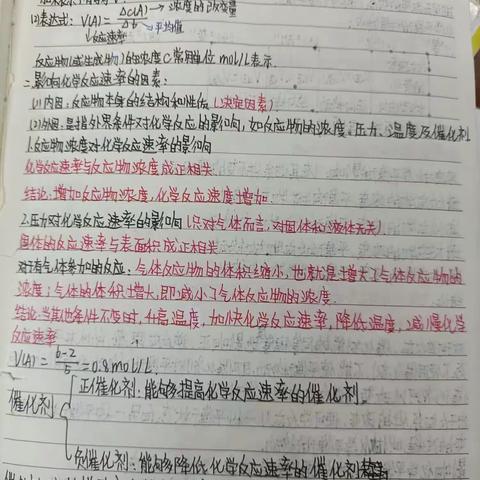 (2)表达式: V(A) = Δc(A)/Δt → 浓度的改变量
→平均值
↳反应速率
反应物(或生成物)的浓度C常用单位 mol/L表示.
二.影响化学反应速率的因素:
(1)内因: 反应物本身的结构和性质 (决定因素)
(2)外因: 是指外界条件对化学反应的影响, 如反应物的浓度、压力、温度及催化剂
1.反应物浓度对化学反应速率的影响
化学反应速率与反应物浓度成正相关
结论: 增加反应物浓度, 化学反应速度增加.
2.压力对化学反应速率的影响 (只对气体而言, 对固体和液体无关)
固体的反应速率与表面积成正相关
对于有气体参加的反应: 气体反应物的体积缩小, 也就是增大了气体反应物的
浓度; 气体的体积增大, 即减小了气体反应物的浓度.
结论: 当其他条件不变时, 升高温度, 加快化学反应速率, 降低温度, 减慢化学
反应速率
V(A) = 6-2/5 = 0.8mol/L.
正催化剂: 能够提高化学反应速率的催化剂.
催化剂
负催化剂: 能够降低化学反应速率的催化剂